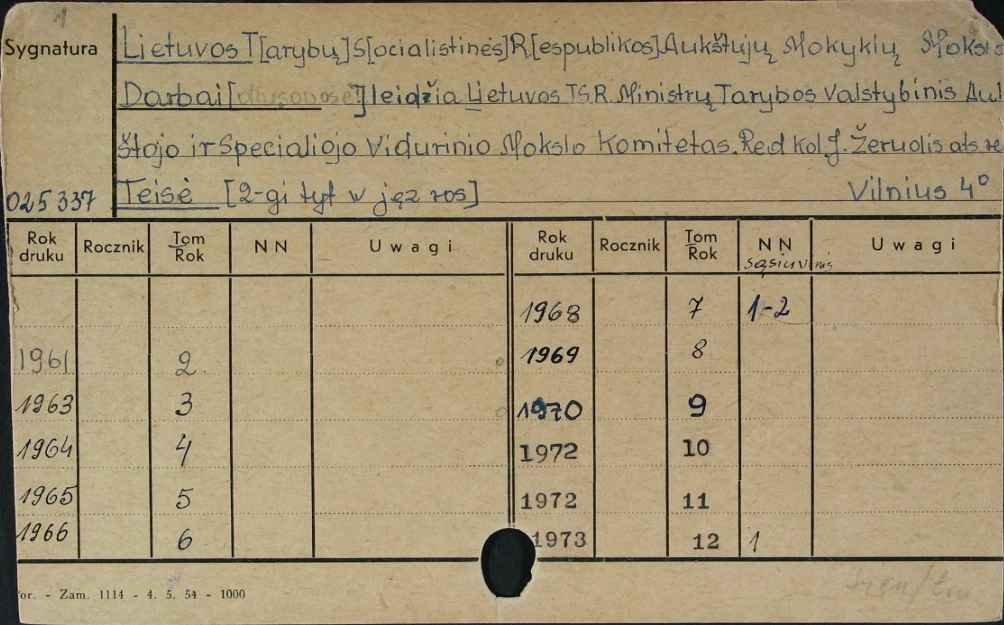 Sygnatura
Lietuvos T[arybų]S[ocialistinės]R[espublikos]Aukštųjų Mokyklų Mokslo
Darbai [ ] leidžia Lietuvos TSR. Ministrų Tarybos Valstybinis Auk
štojo ir Specialiojo Vidurinio Mokslo Komitetas. Red kol J. Žeruolis ats. re
025337 Teisė [2-gi tyt w jęz ros] Vilnius 4°
Rok druku Rocznik Tom Rok N N U w a g i Rok druku Rocznik Tom Rok N N sąsiuvinis U w a g i
1968 7 1-2
1961 2. 1969 8
1963 3 1970 9
1964 4 1972 10
1965 5 1972 11
1966 6 1973 12 1
or. - Zam. 1114 - 4. 5. 54 - 1000